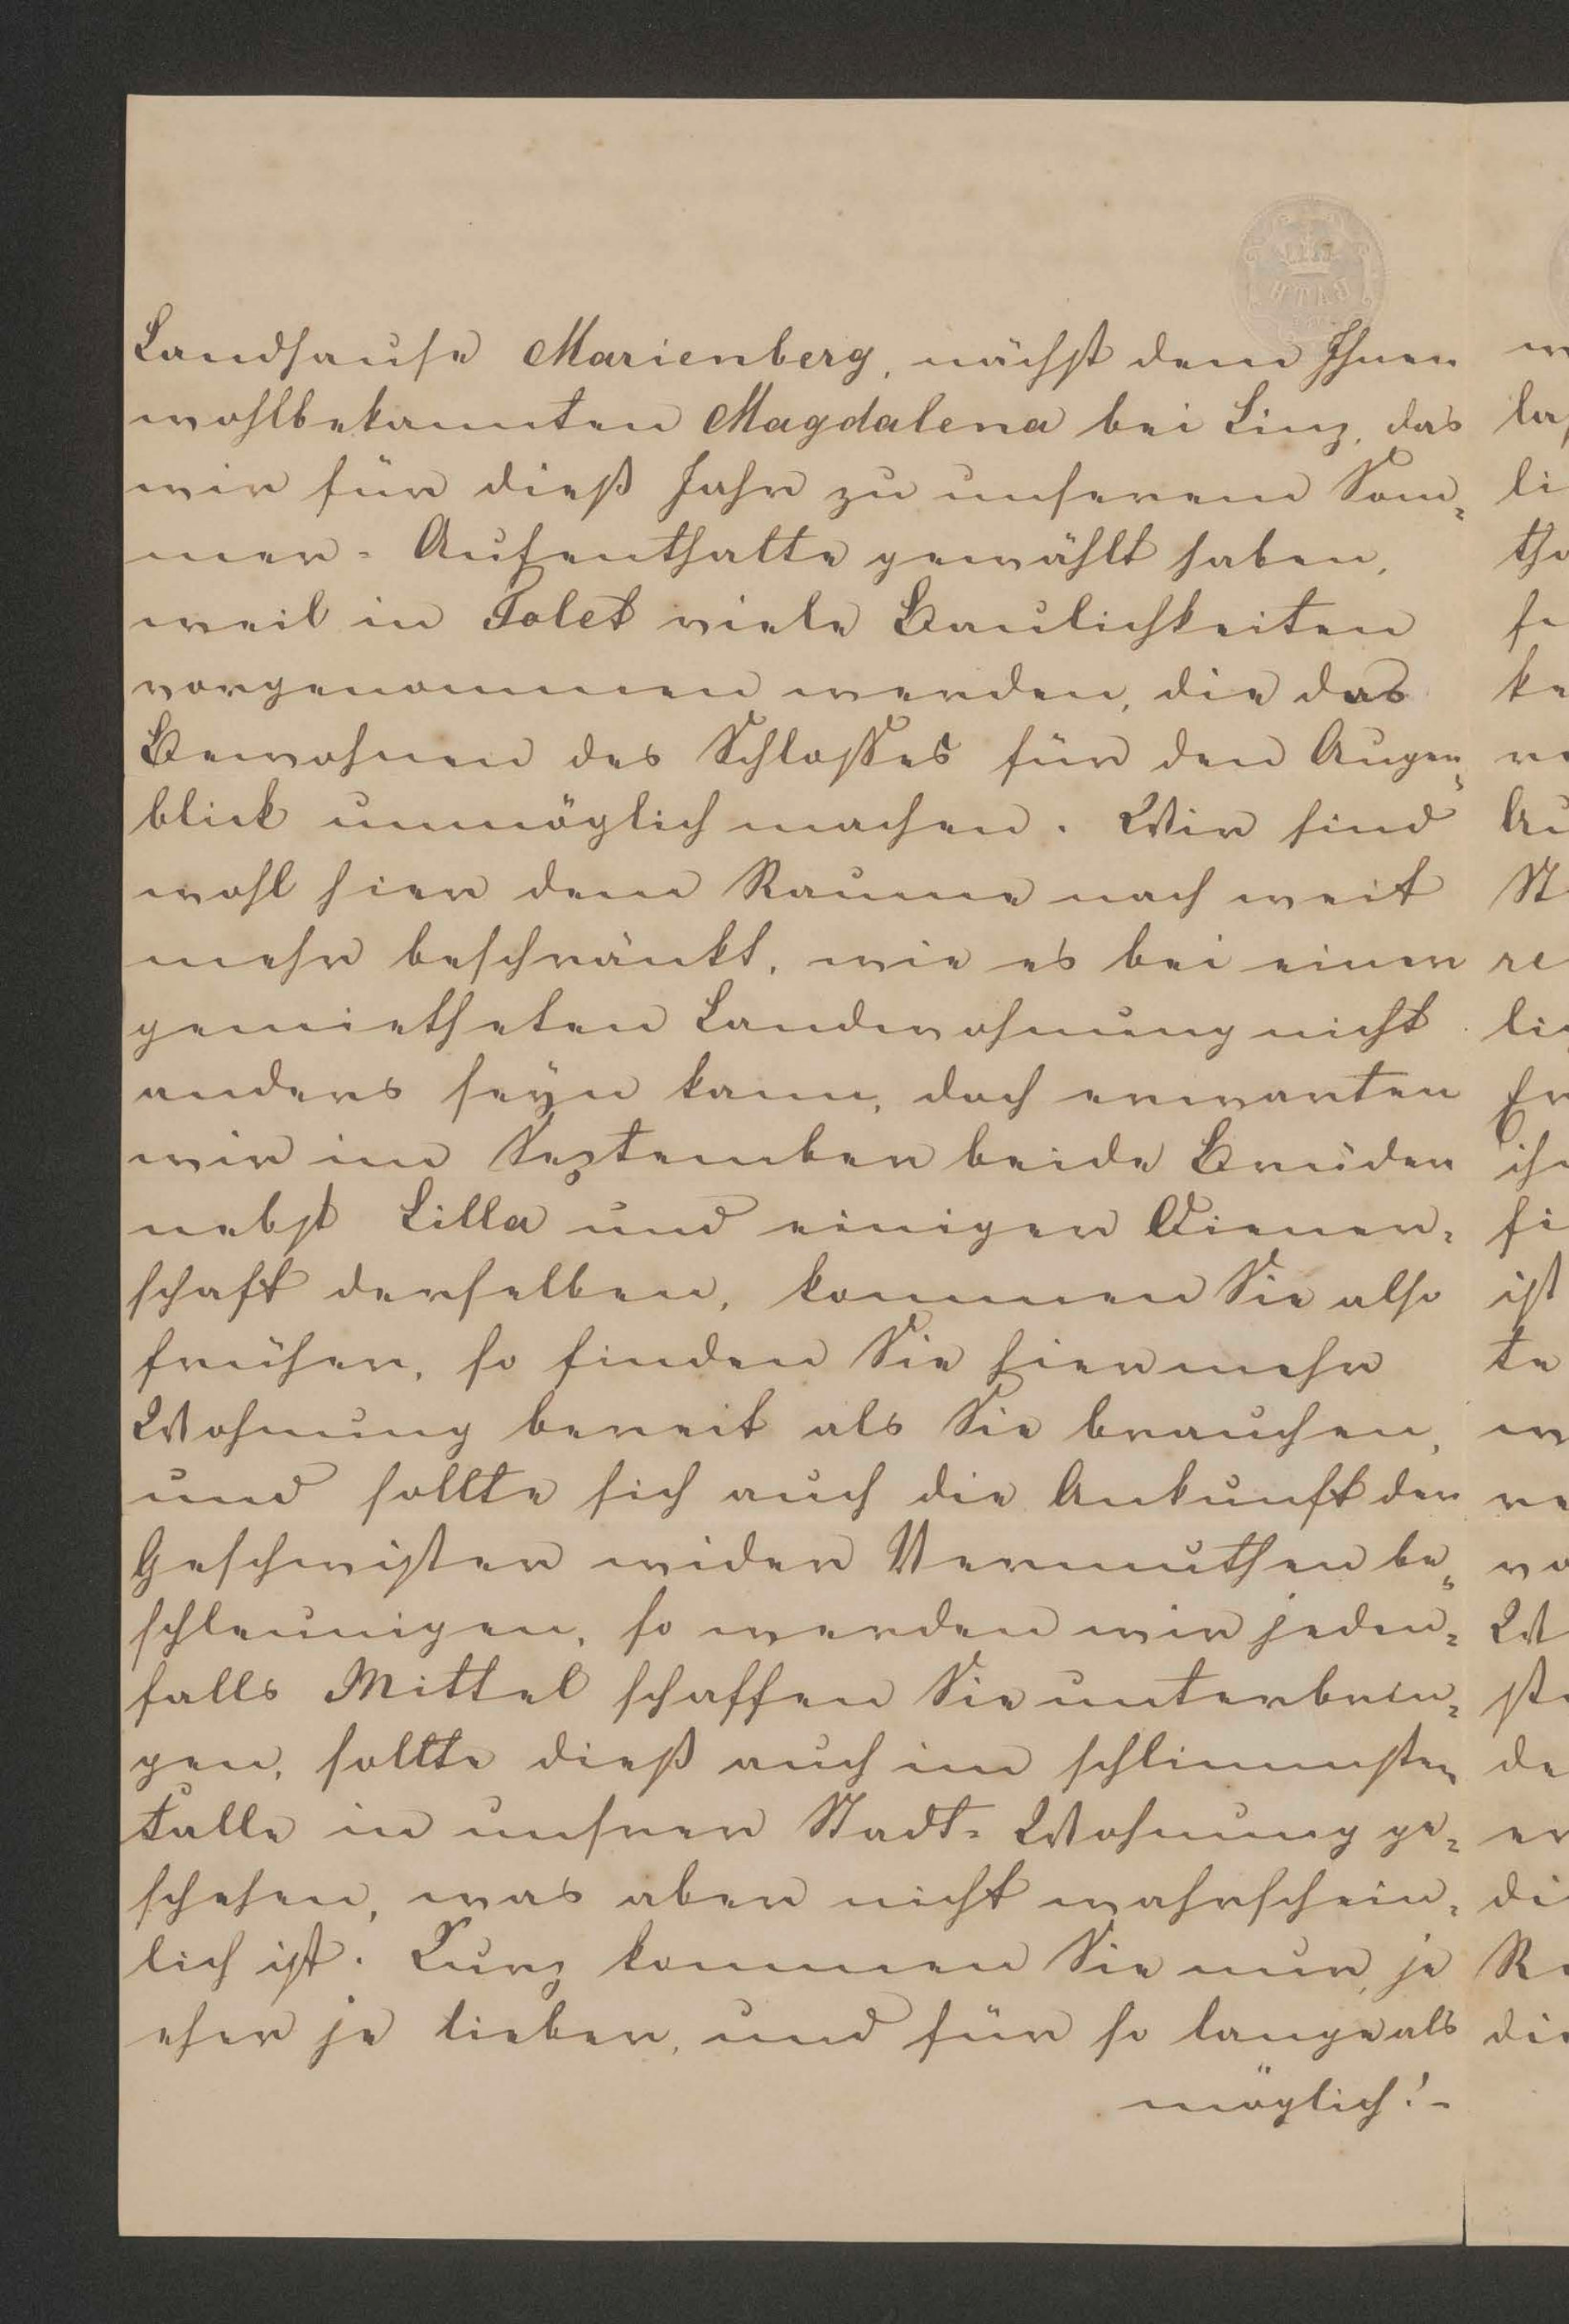 Landhause Marienberg, nächst dem Ihnen
wohlbekannten Magdalena bei Linz, das
wir für dieß Jahr zu unserem Som=
mer= Aufenthalte gewählt haben,
weil in Tolet viele Baulichkeiten
vorgenommen werden, die das
Bewohnen des Schlosses für den Augen=
blick unmöglich machen. Wir sind
wohl hier dem Raume nach weit
mehr beschränkt, wie es bei einer
gemietheten Landwohnung nicht
anders seyn kann, doch erwarten
wir im September beide Brüder
nebst Lilla und einiger Diener=
schaft derselben, kommen Sie also
früher, so finden Sie hier mehr
Wohnung bereit als Sie brauchen,
und sollte sich auch die Ankunft der
Geschwister wider Vermuthen be=
schleunigen, so werden wir jeden=
falls Mittel schaffen Sie unterbrin=
gen, sollte dieß auch im schlimmsten
Falle in unsrer Stadt= Wohnung ge=
schehen, was aber nicht wahrschein=
lich ist. Kurz kommen Sie nur, je
eher je lieber, und für so lange als
möglich! -